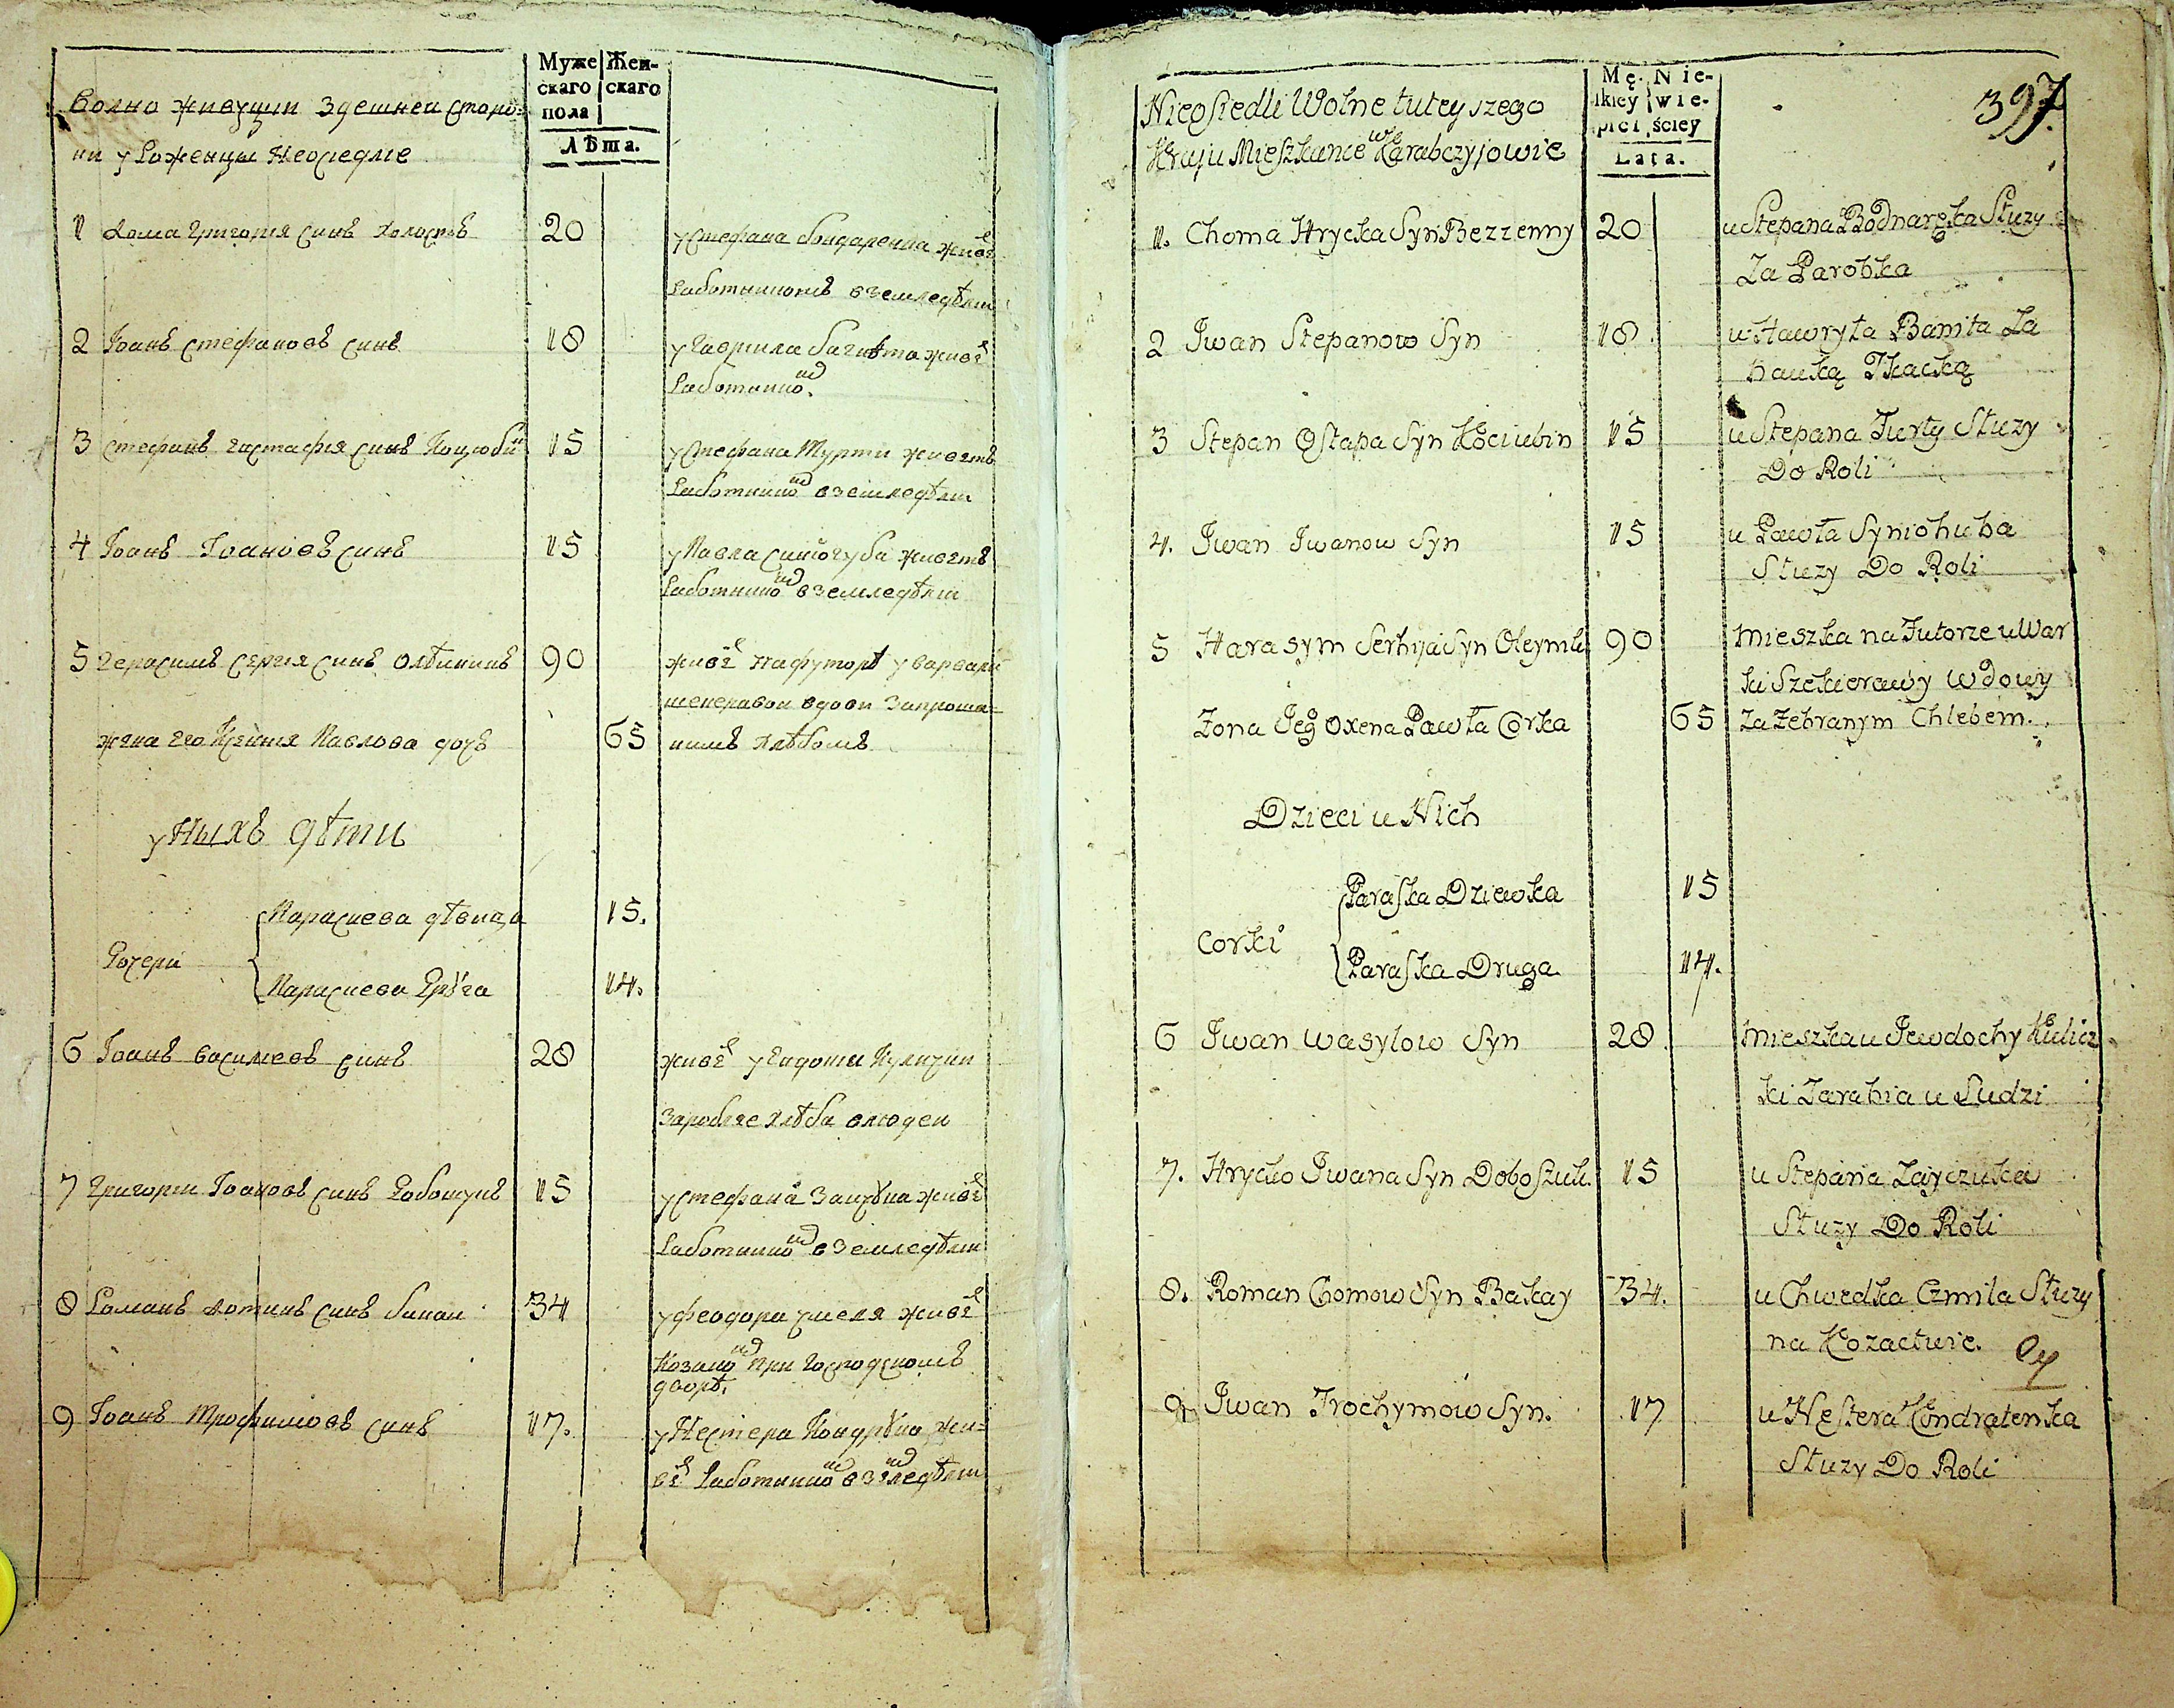 Муже Жен-
скаго скаго
пола
Лѣта.
Волно живущии здешнеи сторо=
ни уроженцы Неоседлие
1 Хома Григория синъ холостъ 20 у Стефана Бондаренка живе͏тъ
работникомъ в земледѣлии
2 Іоанъ Стефановъ синъ 18 у Гаврила живетъ
работникомъ
3 Стефанъ Евстафия синъ Коцюби 15 у Стефана Турти живетъ
работникомъ в земледѣлии
4 Іоанъ Іоановъ синъ 15 у Павла Синогуба живетъ
работникомъ в земледѣлии
5 Герасимъ Сергия синъ Олѣиникъ 90 живетъ на футорѣ у Варвари
шекеравои вдови Запроша=
жена его Ксения Павлова дочь 65 нимъ хлѣбомъ
у Ныхъ дѣти
Парасиева дѣвица 15.
Дочери
Парасиева Друга 14.
6 Іоанъ Василиевъ синъ 28 живетъ у Евдокии Куличии
Заробляе хлѣба в людеи
7 Григории Іоановъ синъ Добошукъ 15 у Стефана Заичука живетъ
работникомъ в земледѣлии
8 Романъ Хоминъ синъ Бакаи 34 у Феодора Чмеля живетъ
Козакомъ при Господскомъ
дворѣ.
9 Іоанъ Трофимовъ синъ 17. у Нестера Кондрука жи=
ветъ работникомъ в земледѣлии
397.
Mę- Nie-
skiey wie-
płci ściey
Lata.
Nieosiedli Wolne tuteyszego
Kraju Mieszkance we Karabczyjowie
1. Choma Hrycka Syn Bezzenny 20 u Stepana Bodnaręka Słuzy
Za Parobka
2 Iwan Stepanow Syn 18. u Hawryła Banita Za
nauką Tkacką
3 Stepan Ostapa Syn Kociubin 15 u Stepana Turty Słuzy
Do Roli
4. Iwan Iwanow Syn 15 u Pawła Syniohuba
Słuzy Do Roli
5 Harasym Serhija Syn Oleynik 90 Mieszka na Futorze u War
ki Szekierawy Wdowy
Zona Jego Oxena Pawła Corka 65 Za Zebranym Chlebem.
Dzieci u Nich
Paraska Dziewka 15
Corki
Paraska Druga 14.
6 Iwan Wasylow Syn 28. Mieszka u Jewdochy Kulicz
ki Zarabia u Ludzi
7. Hryćko Iwana Syn Doboszuk. 15 u Stepana Zayczuka
Słuzy Do Roli
8. Roman Chomow Syn Bakay 34. u Chwedka Czmila Słuzy
na Kozactwie.
9 Iwan Trochymow Syn. 17 u Nestera Kondratenka
Słuzy Do Roli